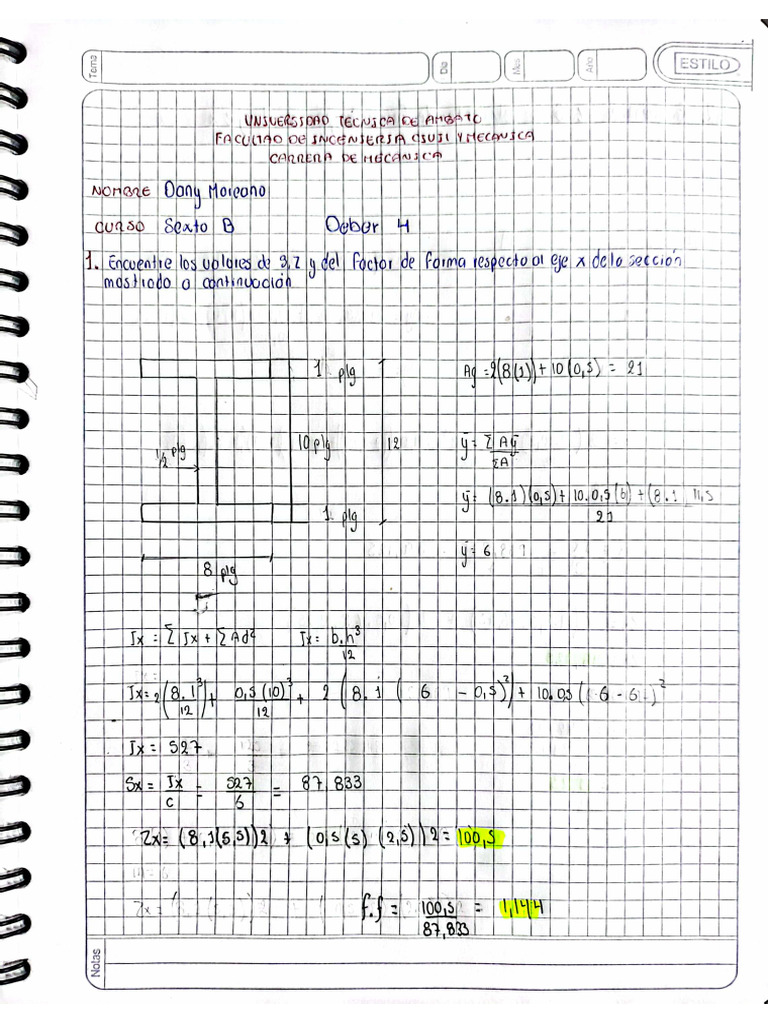 Tema
De
Mes
Año
ESTILO
UNIVERSIDAD TECNICA DE AMBATO
FACULTAD DE INGENIERIA CIVIL Y MECANICA
CARRERA DE MECANICA
NOMBRE Dany Moreano
CURSO Sexto B Deber 4
1. Encuentre los valores de S, Z y del factor de forma respecto al eje x de la sección
mostrada a continuación
1 plg
Ag = 2(8(1)) + 10(0,5) = 21
1/2 plg
10 plg
12
ȳ = ΣAȳ / ΣA
ȳ = (8.1)(0,5) + 10.0,5(6) + (8.1 11,5 / 21
1 plg
ȳ = 6
8 plg
Ix = ΣIx + ΣAd² Ix = b.h³ / 12
Ix = 2(8.1³/12) + 0,5(10)³/12 + 2(8.1(6 - 0,5)²) + 10.0,5(6-6)²
Ix = 527
Sx = Ix/c = 527/6 = 87,833
Zx = (8,1(5,5))2 + (0,5(5)(2,5))2 = 100,5
Zx =
f.f = 100,5 / 87,833 = 1,144
Notas